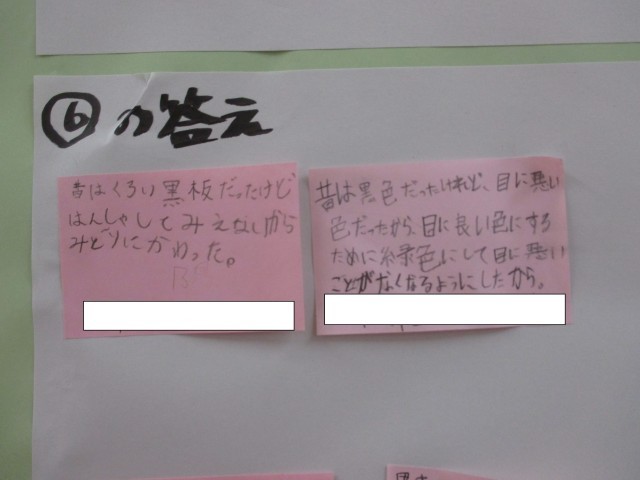 ⑥の答え
昔はくろい黒板だったけど
はんしゃしてみえないから
みどりにかわった。
昔は黒色だったけれど、目に悪い
色だったから、目に良い色にする
ために緑色にして目に悪い
ことがなくなるようにしたから。